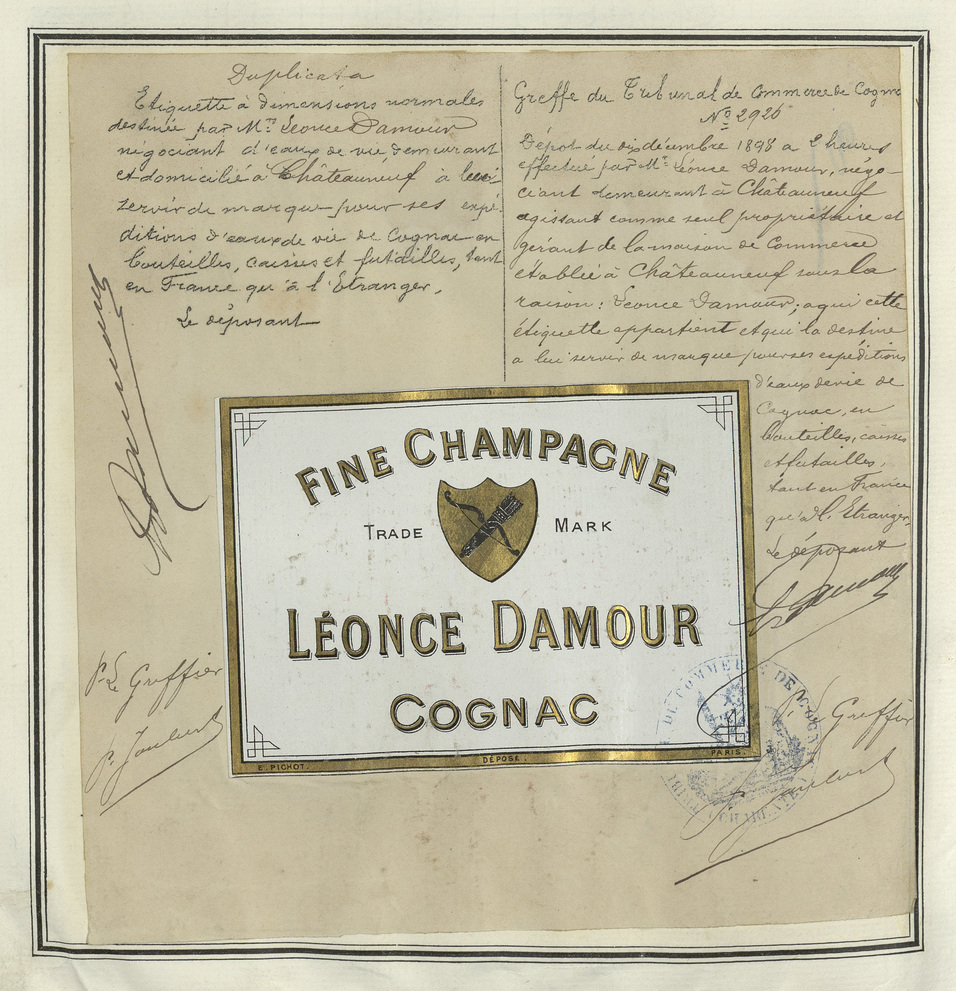 Duplicata
Etiquette à dimensions normales
destinée par Mr. Léonce Damour
négociant d'eaux de vie demeurant
et domicilié à Châteauneuf à lui
servir de marque pour ses expé-
ditions d'eaux de vie de Cognac en
bouteilles, caisses et futailles, tant
en France qu'à l'Etranger.
Le déposant
Damour
Greffe du Tribunal de Commerce de Cognac
No 2926
Dépot du dix décembre 1898 a 2 heures
effectué par Mr. Léonce Damour, négo-
ciant demeurant à Châteauneuf
agissant comme seul propriétaire et
gérant de la maison de Commerce
établie à Châteauneuf sous la
raison: Léonce Damour, a qui cette
étiquette appartient et qui la destine
a lui servir de marque pour ses expéditions
d'eaux de vie de
Cognac, en
bouteilles, caisses
et futailles,
tant en France
qu'à l'Etranger.
Le déposant
L Damour
FINE CHAMPAGNE
TRADE MARK
LÉONCE DAMOUR
COGNAC
E. PICHOT.
DÉPOSÉ.
PARIS.
P. Le Greffier
P. Le Greffier
DE COMMERCE DE COGNAC
CHARENTE